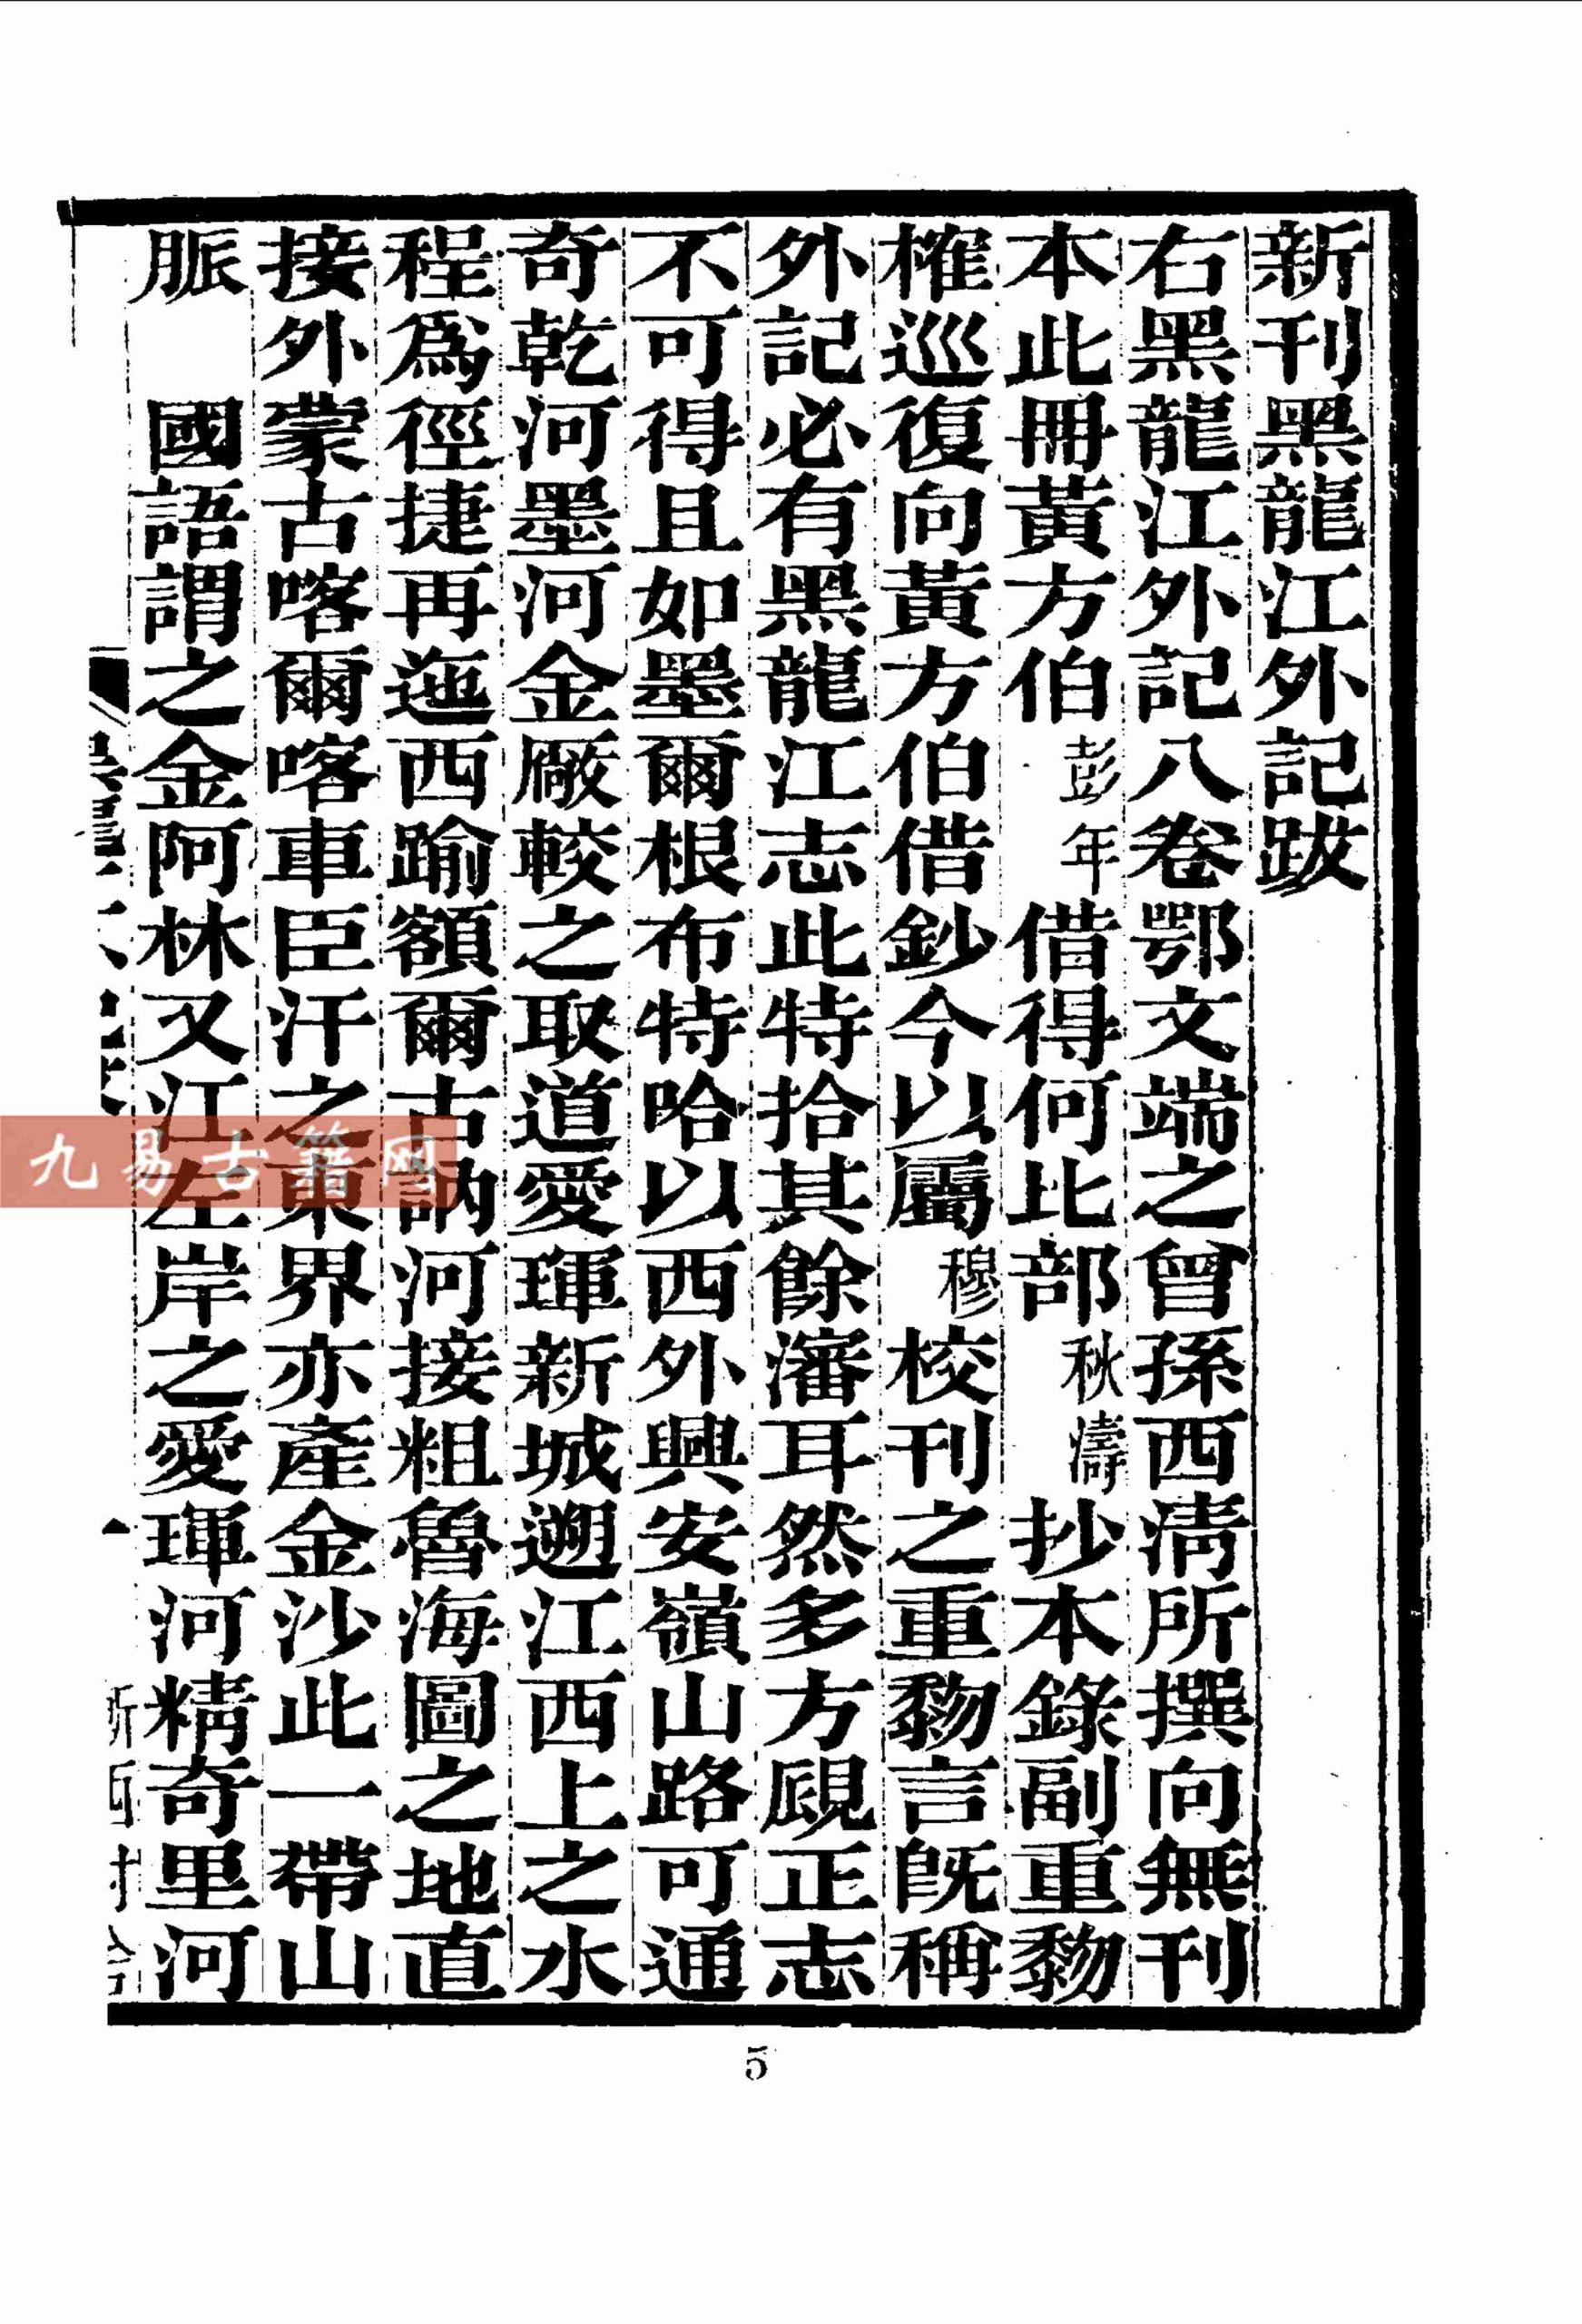 新刊黑龍江外記跋
右黑龍江外記八卷鄂文端之曾孫西淸所撰向無刊
本此冊黃方伯彭年借得何比部秋濤抄本錄副重黝
榷巡復向黃方伯借鈔今以屬穆校刊之重黝言旣稱
外記必有黑龍江志此特拾其餘瀋耳然多方覛正志
不可得且如墨爾根布特哈以西外興安嶺山路可通
奇乾河墨河金厰較之取道愛琿新城遡江西上之水
程爲徑捷再迤西踰額爾古訥河接粗魯海圖之地直
接外蒙古喀爾喀車臣汗之東界亦產金沙此一帶山
脈 國語謂之金阿林又江左岸之愛琿河精奇里河
九易古籍网
5